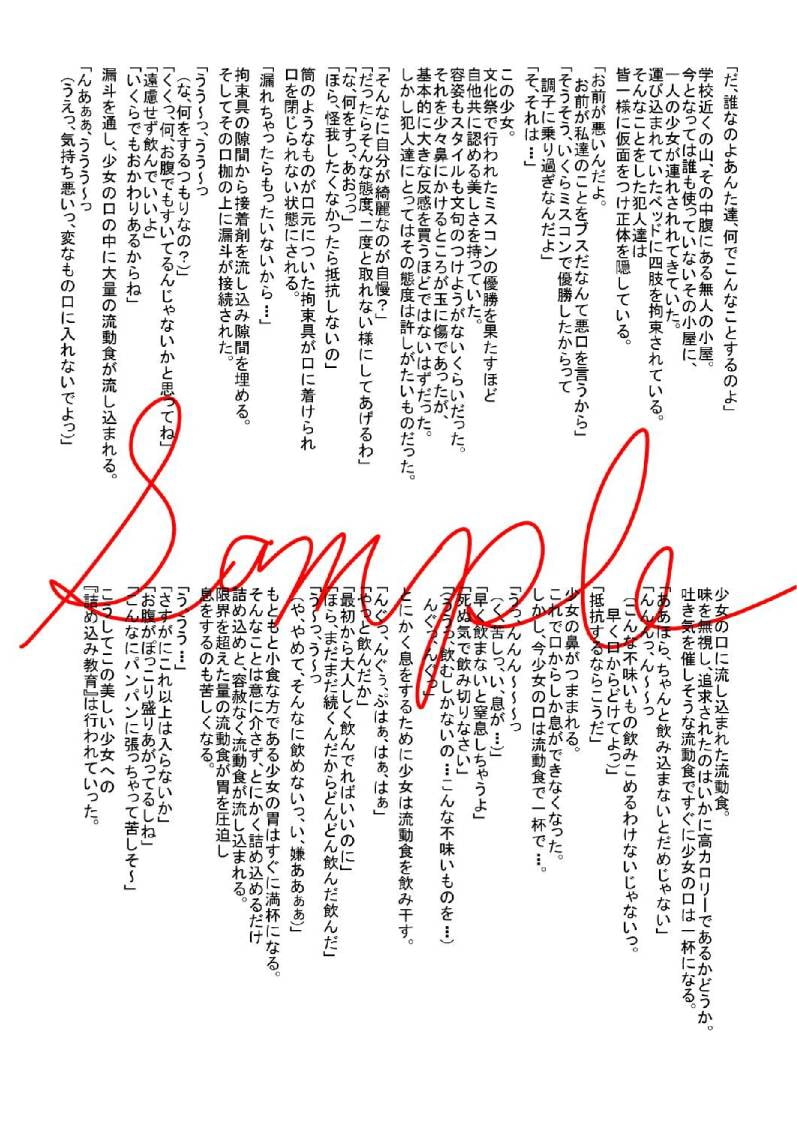 「だ、誰なのよあんた達、何でこんなことするのよ」
学校近くの山、その中腹にある無人の小屋。
今となっては誰も使っていないその小屋に、
一人の少女が連れされてきていた。
運び込まれていたベッドに四肢を拘束されている。
そんなことをした犯人達は
皆一様に仮面をつけ正体を隠している。
「お前が悪いんだよ。
お前が私達のことをブスだなんて悪口を言うから」
「そうそう、いくらミスコンで優勝したからって
調子に乗り過ぎなんだよ」
「そ、それは…」
この少女。
文化祭で行われたミスコンの優勝を果たすほど
自他共に認める美しさを持っていた。
容姿もスタイルも文句のつけようがないくらいだった。
それを少々鼻にかけるところが玉に傷であったが、
基本的に大きな反感を買うほどではないはずだった。
しかし犯人達にとってはその態度は許しがたいものだった。
「そんなに自分が綺麗なのが自慢?」
「だったらそんな態度、二度と取れない様にしてあげるわ」
「な、何をすっ、あおっっ」
「ほら、怪我したくなかったら抵抗しないの」
筒のようなものが口元についた拘束具が口に着けられ
口を閉じられない状態にされる。
「漏れちゃったらもったいないから…」
拘束具の隙間から接着剤を流し込み隙間を埋める。
そしてその口枷の上に漏斗が接続された。
「うう~っ、うう~っ
(な、何をするつもりなの?)」
「くくっ、何、お腹でもすいてるんじゃないかと思ってね」
「遠慮せず飲んでいいよ」
「いくらでもおかわりあるからね」
漏斗を通し、少女の口の中に大量の流動食が流し込まれる。
「んあぁぁ、ううう~っ
(うえっ、気持ち悪いっ、変なもの口に入れないでよっ)」
少女の口に流し込まれた流動食。
味を無視し、追求されたのはいかに高カロリーであるかどうか。
吐き気を催しそうな流動食ですぐに少女の口は一杯になる。
「ああほら、ちゃんと飲み込まないとだめじゃない」
「んんんっ、ん~~っ
(こんな不味いもの飲みこめるわけないじゃないっ。
早く口からどけてよっ)」
「抵抗するならこうだ」
少女の鼻がつままれる。
これで口からしか息ができなくなった。
しかし、今少女の口は流動食で一杯で…。
「うっ、んんん~~~っ
(く、苦しっ、い、息が…)」
「早く飲まないと窒息しちゃうよ」
「死ぬ気で飲み切りなさい」
(ううっ、飲むしかないの…こんな不味いものを…)
「んぐっ、んぐっ」
とにかく息をするために少女は流動食を飲み干す。
「んぐっ、んぐぅ。ぷはぁ、はぁ、はぁ」
「やっと飲んだか」
「最初から大人しく飲んでればいいのに」
「ほら、まだまだ続くんだからどんどん飲んだ飲んだ」
「う~っ、う~っ
(や、やめて、そんなに飲めないっ、い、嫌ああぁぁ)」
もともと小食な方である少女の胃はすぐに満杯になる。
そんなことは意に介さず、とにかく詰め込めるだけ
詰め込めと、容赦なく流動食が流し込まれる。
限界を超えた量の流動食が胃を圧迫し
息をするのも苦しくなる。
「う、うう…」
「さすがにこれ以上は入らないか」
「お腹がぽっこり盛りあがってるしね」
「こんなにパンパンに張っちゃって苦しそ~」
こうしてこの美しい少女への
『詰め込み教育』は行われていった。
Sample